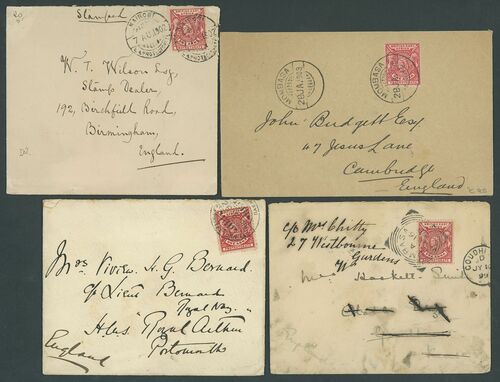 Stamped
NAIROBI
7 AU 1902
W. T. Wilson Esq,
Stamp Dealer,
192, Birchfield Road,
Birmingham,
England.
MOMBASA
28 JA 1903
MOMBASA
28 JA
John Budgett Esq
47 Jesus Lane
Cambridge
England
Mrs Vivien H. G. Bernard
c/o Lieut Bernard
Royal Navy
H.M.S "Royal Arthur"
Portsmouth
England
c/o Mrs Chitty
27 Westbourne
Gardens
W
Hackett
GOUDH
JY 1
99